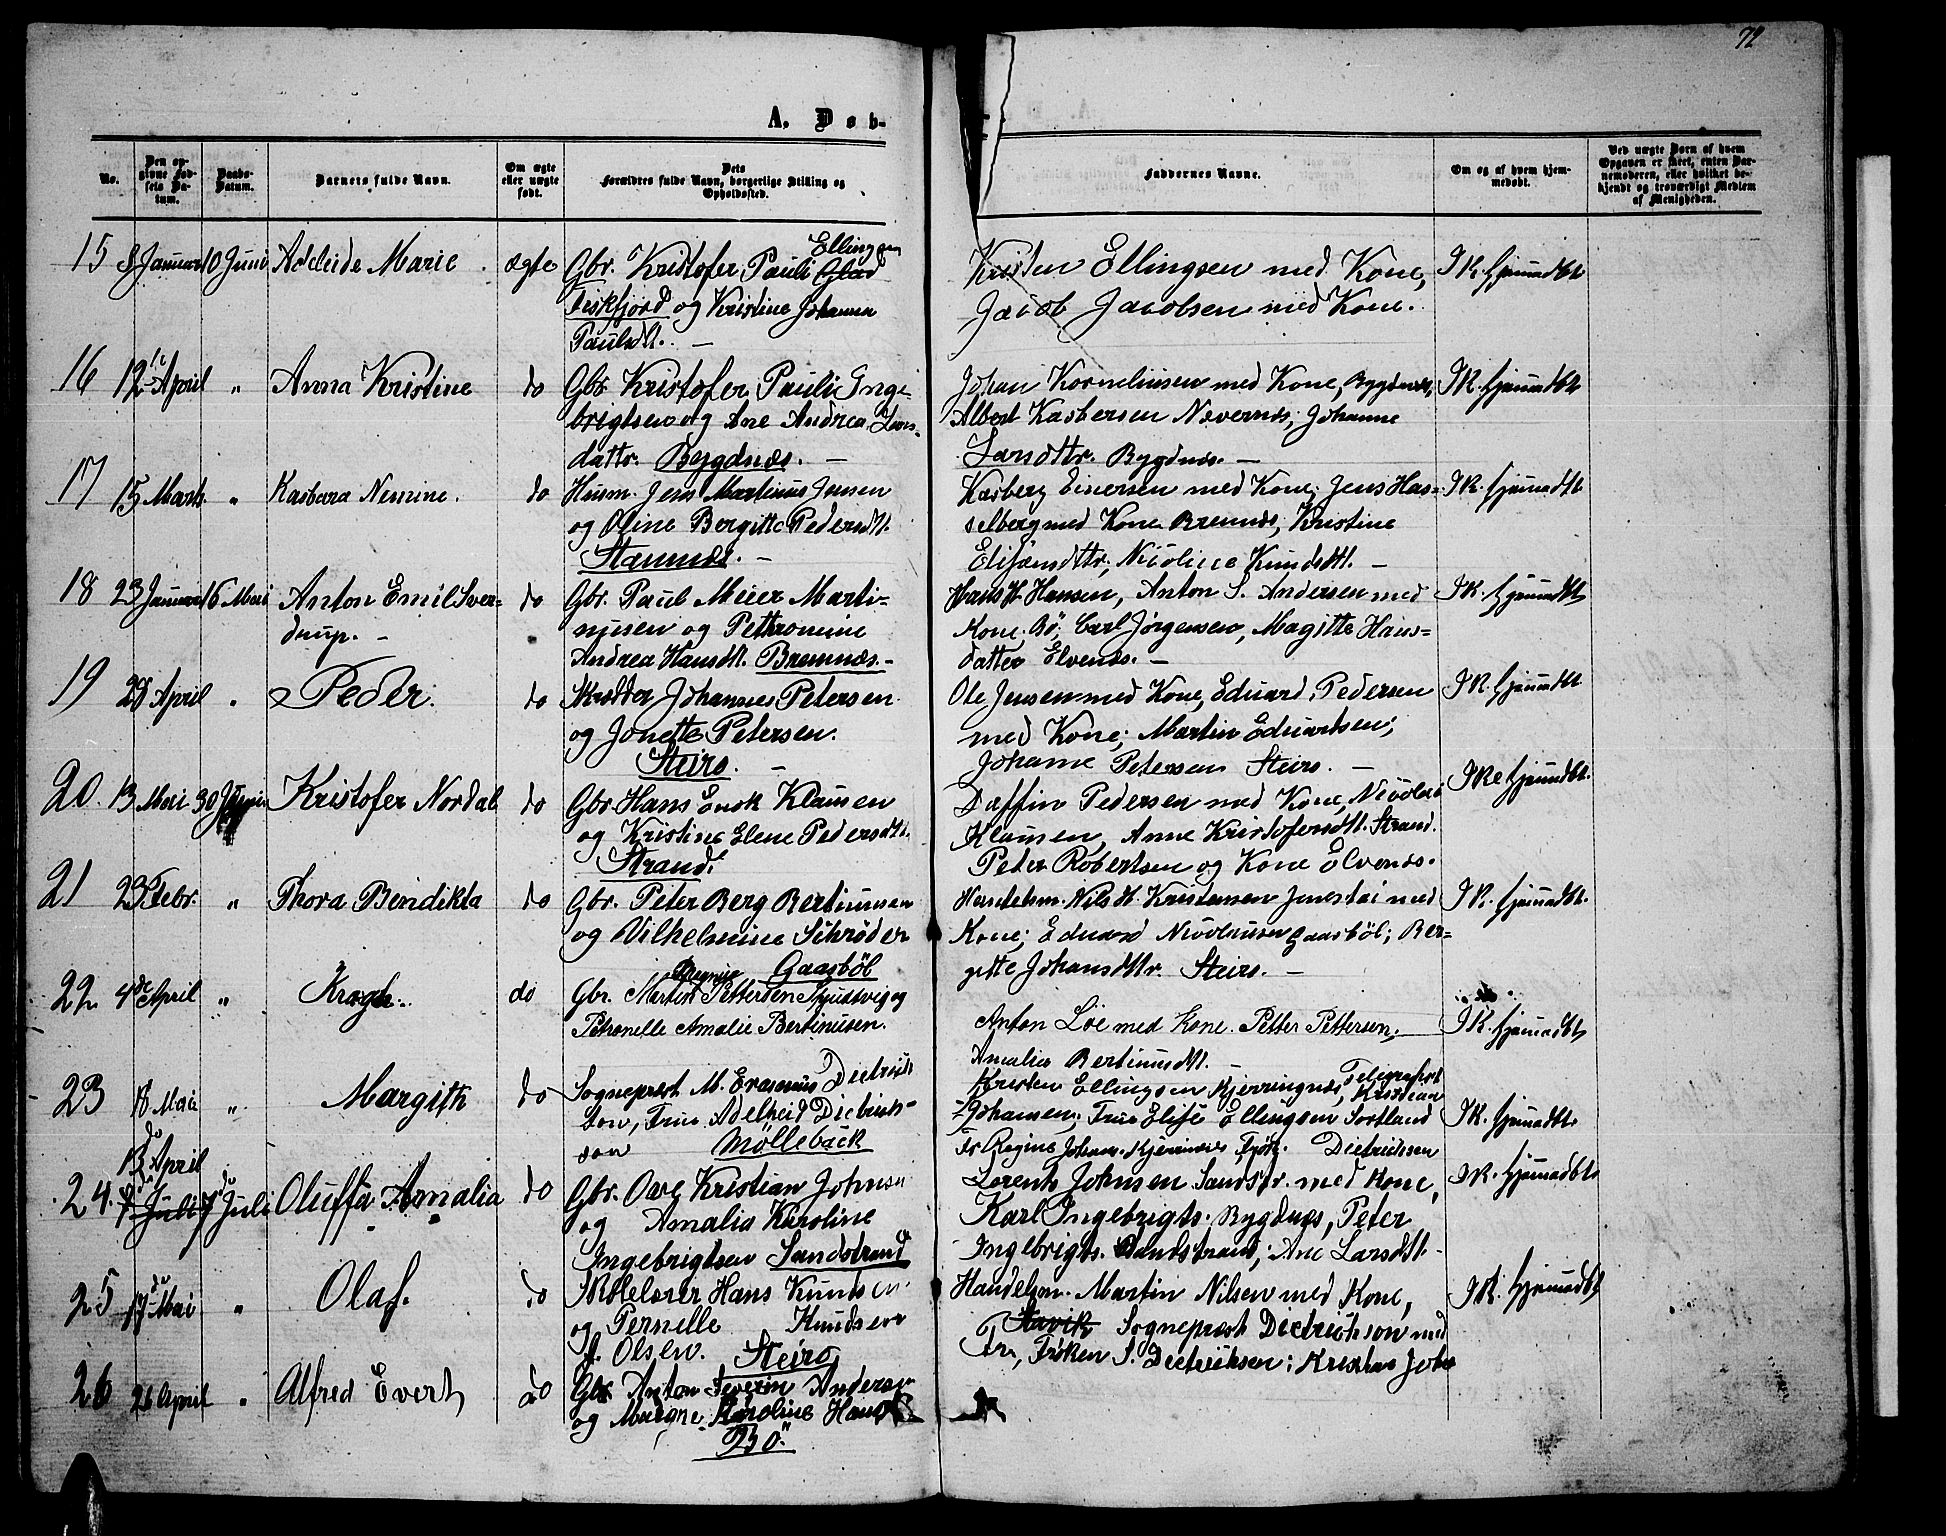 72
A. Døb-
No.
Den op-
givne Fød-
sels Da-
tum.
Daabs-
Datum.
Barnets fulde Navn.
Om ægte
eller uægte
født.
Dets
Forældres fulde Navn, borgerlige Stilling og
Opholdssted.
Faddernes Navne.
Om og af hvem hjem-
medøbt.
Ved uægte Børn af hvem
Opgaven er skeet, enten Bar-
nemoderen, eller hvilket be-
kjendt og troværdigt Medlem
af Menigheden.
15 8 Januar 10 Juni Adeleide Marie ægte Gbr. Kristofer Pauli Ellingsen
Fiskfjord og Kristine Johanna
Paulsdt. —
Kristen Ellingsen med Kone,
Jacob Jacobsen med Kone.
IK. hjemmdbt
16 12te April " Anna Kristine do Gbr. Kristofer Pauli Inge-
brigtsen og Ane Andrea Lars-
dattr. Bygdnæs. —
Johan Korneliusen med Kone, Bygdnæs,
Albert Kasbersen Nævernæs, Johanne
Larsdttr. Bygdnæs. —
IK. hjemmdbt
17 15 Marts " Kasbara Nemine. do Husm. Jens Martinus Jensen
og Oline Bergitte Pedersdt.
Stamnæs. —
Kasberg Einersen med Kone, Jens Has-
selberg med Kone Bremnæs, Kristine
Nicoline Knudsdt. —
IK. hjemmdbt
18 23 Januar 16 Mai Anton Emil Sver-
drup. - do Gbr. Paul Meier Marti-
nusen og Pethronine
Andrea Hansdt. Bremnæs. -
Hans H. Hansen, Anton S. Andersen med
Kone Bø, Carl Jørgensen, Magitte Hans-
datter Elvenæs. —
IK. hjemmdbt
19 28 April " Peder. do Skrædder Johannes Petersen
og Jonette Petersen.
Steiro. —
Ole Jensen med Kone, Eduard Pedersen
med Kone; Martin Eduartsen;
Johanne Petersen Steiro. —
IK. hjemmdbt
20. 13 Mai 30 Juni Kristofer Nordal do Gbr. Hans Enok Klausen
og Kristine Elene Pedersdtt.
Strand.
Daffin Pedersen med Kone, Nicolai
Klausen, Anne Kristofersdt. Strand.
Peter Robertsen og Kone Elvenæs.
IK hjemmdbt.
21 23 Febr. " Thora Bendikta do Gbr. Peter Berg Bertiunsen
og Vilhelmine Schrøder
Gaasbøl
Handelsm. Nils H. Kristensen med
Kone; Eduard Nicolaisen Gaasbøl; Ber-
gitte Johansdttr. Steiro. —
IK. hjemmdbt.
22 4de April " Kragh. do Gbr. Martin Pettersen og
Petronelle Amalie Bertinusen.
Anton Loe med Kone. Petter Pettersen,
Amalia Bertinusdt. —
IK. hjemmdbt
23 18 Mai " Margith do Sogneprest M. Erasmus Dietrich-
son, Frue Adelheid Dietrich-
son Møllebäck
Kristen Ellingsen Kjerringnæs, Telegrafist Kristian
Johansen; Frue Elise Ellingsen Sortland
Fr. Regine Johans. Frøk. Dietrichsen
IK. hjemmdbt.
24. 13de April 7de Juli 7de Juli Oluffa Amalia do Gbr. Ove Kristian Johnsen
og Amalia Karoline
Ingebrigtsen Sandstrand
Lorents Johnsen Sandstr. med Kone,
Karl Ingebrigts. Bygdnæs, Peter
Ingebrigts. Sandstrand; Ane Larsdtt.
IK. hjemmdbt
25 17de Mai " Olaf. do Skolelærer Hans Knudsen
og Pernelle Knudsen
f. Olsen. Steiro
Handelsm. Martin Nilsen med Kone,
Sogneprest Dietrichson med
Fr., Frøken S. Dietrichsen; Kristian Joha
IK. hjemmdbt
26 26 April " Alfred Evert do Gbr. Anton Severin Andersen
og Karoline Hans
Bø.